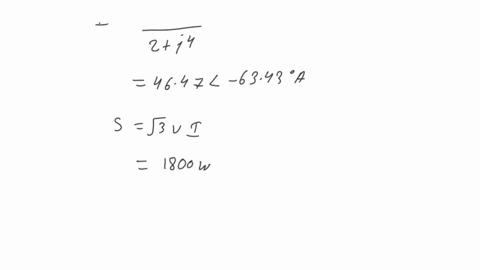 2+j4
= 46.47 < -63.43°A
S = √3 V I
= 1800 w